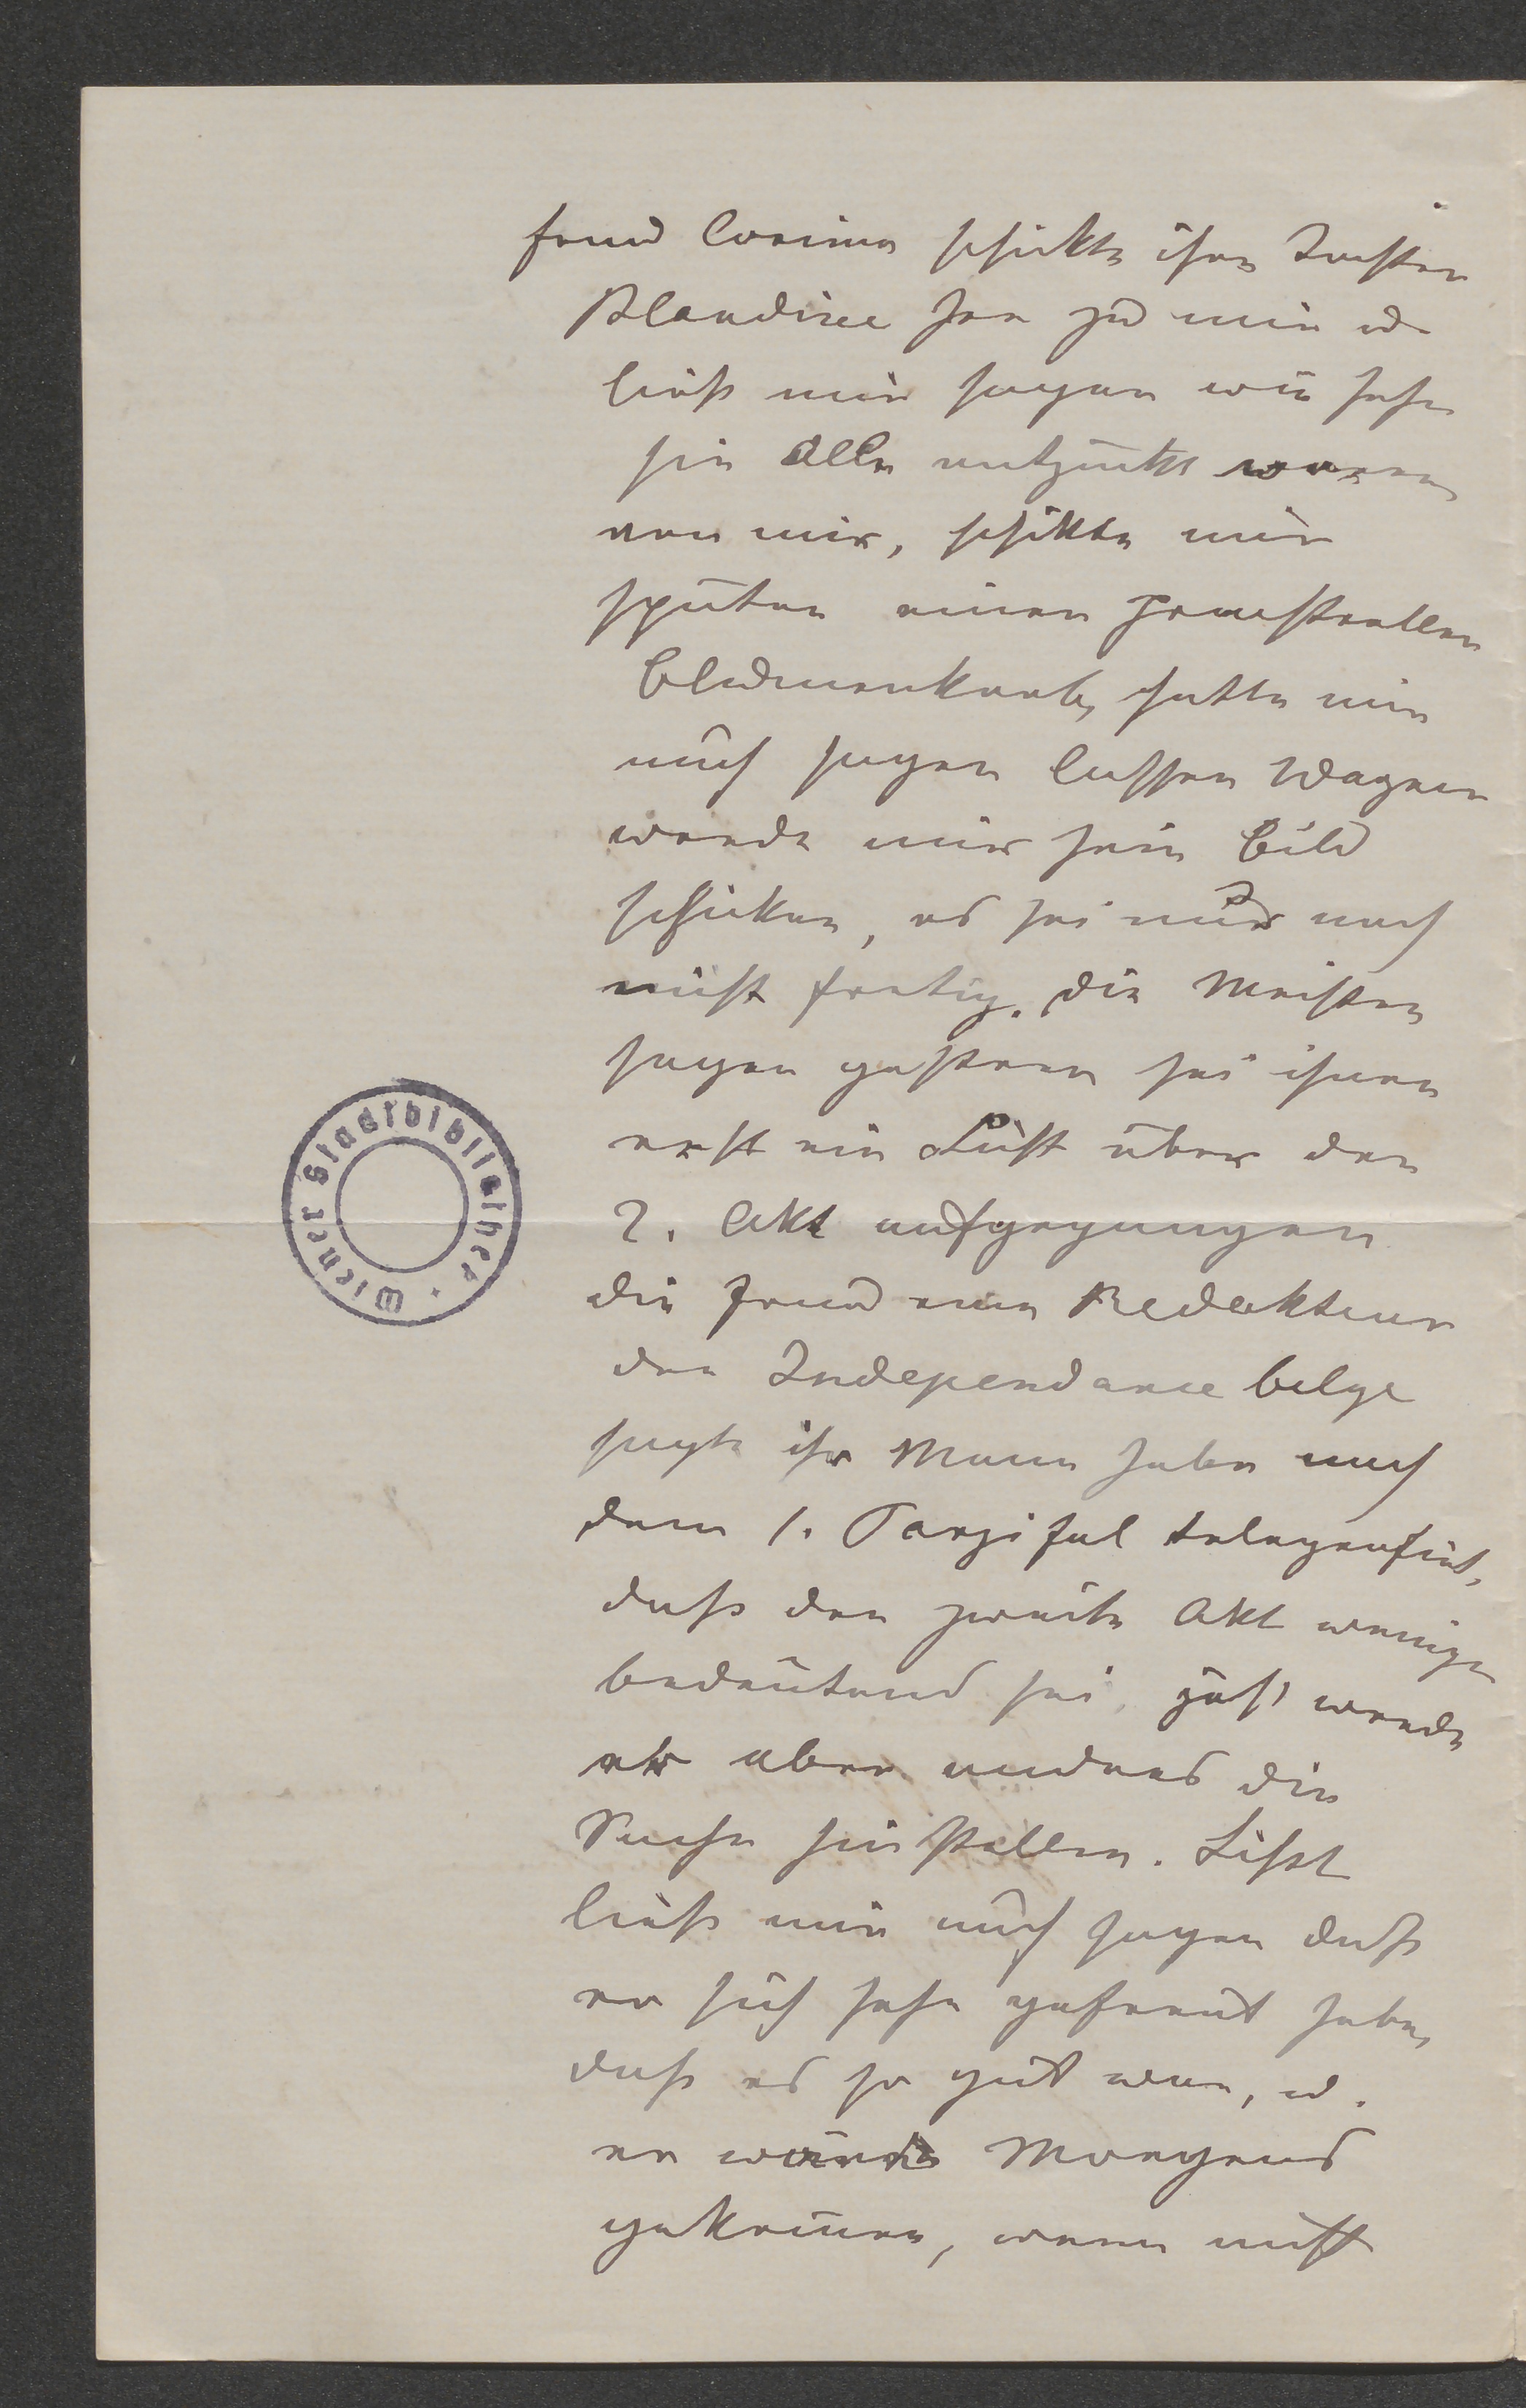 Frau Cosima schickte ihre Tochter
Blandine her zu mir u
ließ mir sagen wie sehr
sie Alle entzückt waren
von mir, schikte mir
später einen prachtvollen
Blumenkorb, hatte mir
auch sagen lassen Wagner
werde mir sein Bild
schicken, es sei nur noch
nicht fertig. Die Meisten
sagen gestern sei ihnen
erst ein Licht über den
2. Akt aufgegangen
die Frau vom Redakteur
der Independance belge
sagte ihr Mann habe nach
dem 1. Parzifal telegrafirt,
daß der zweite Akt weniger
bedeutend sei, jetzt werde
er aber anders die
Sache hinstellen. Liszt
ließ mir auch sagen daß
er sich sehr gefreut habe,
daß es so gut war, u.
er würde Morgens
gekom̅en, wenn nicht
Wiener Stadtbibliothek.